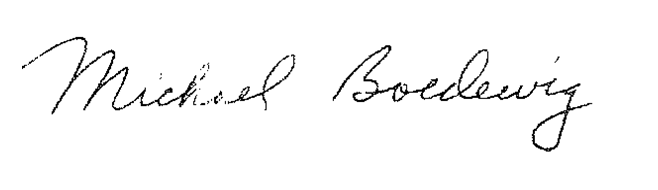 Michael Boedewig